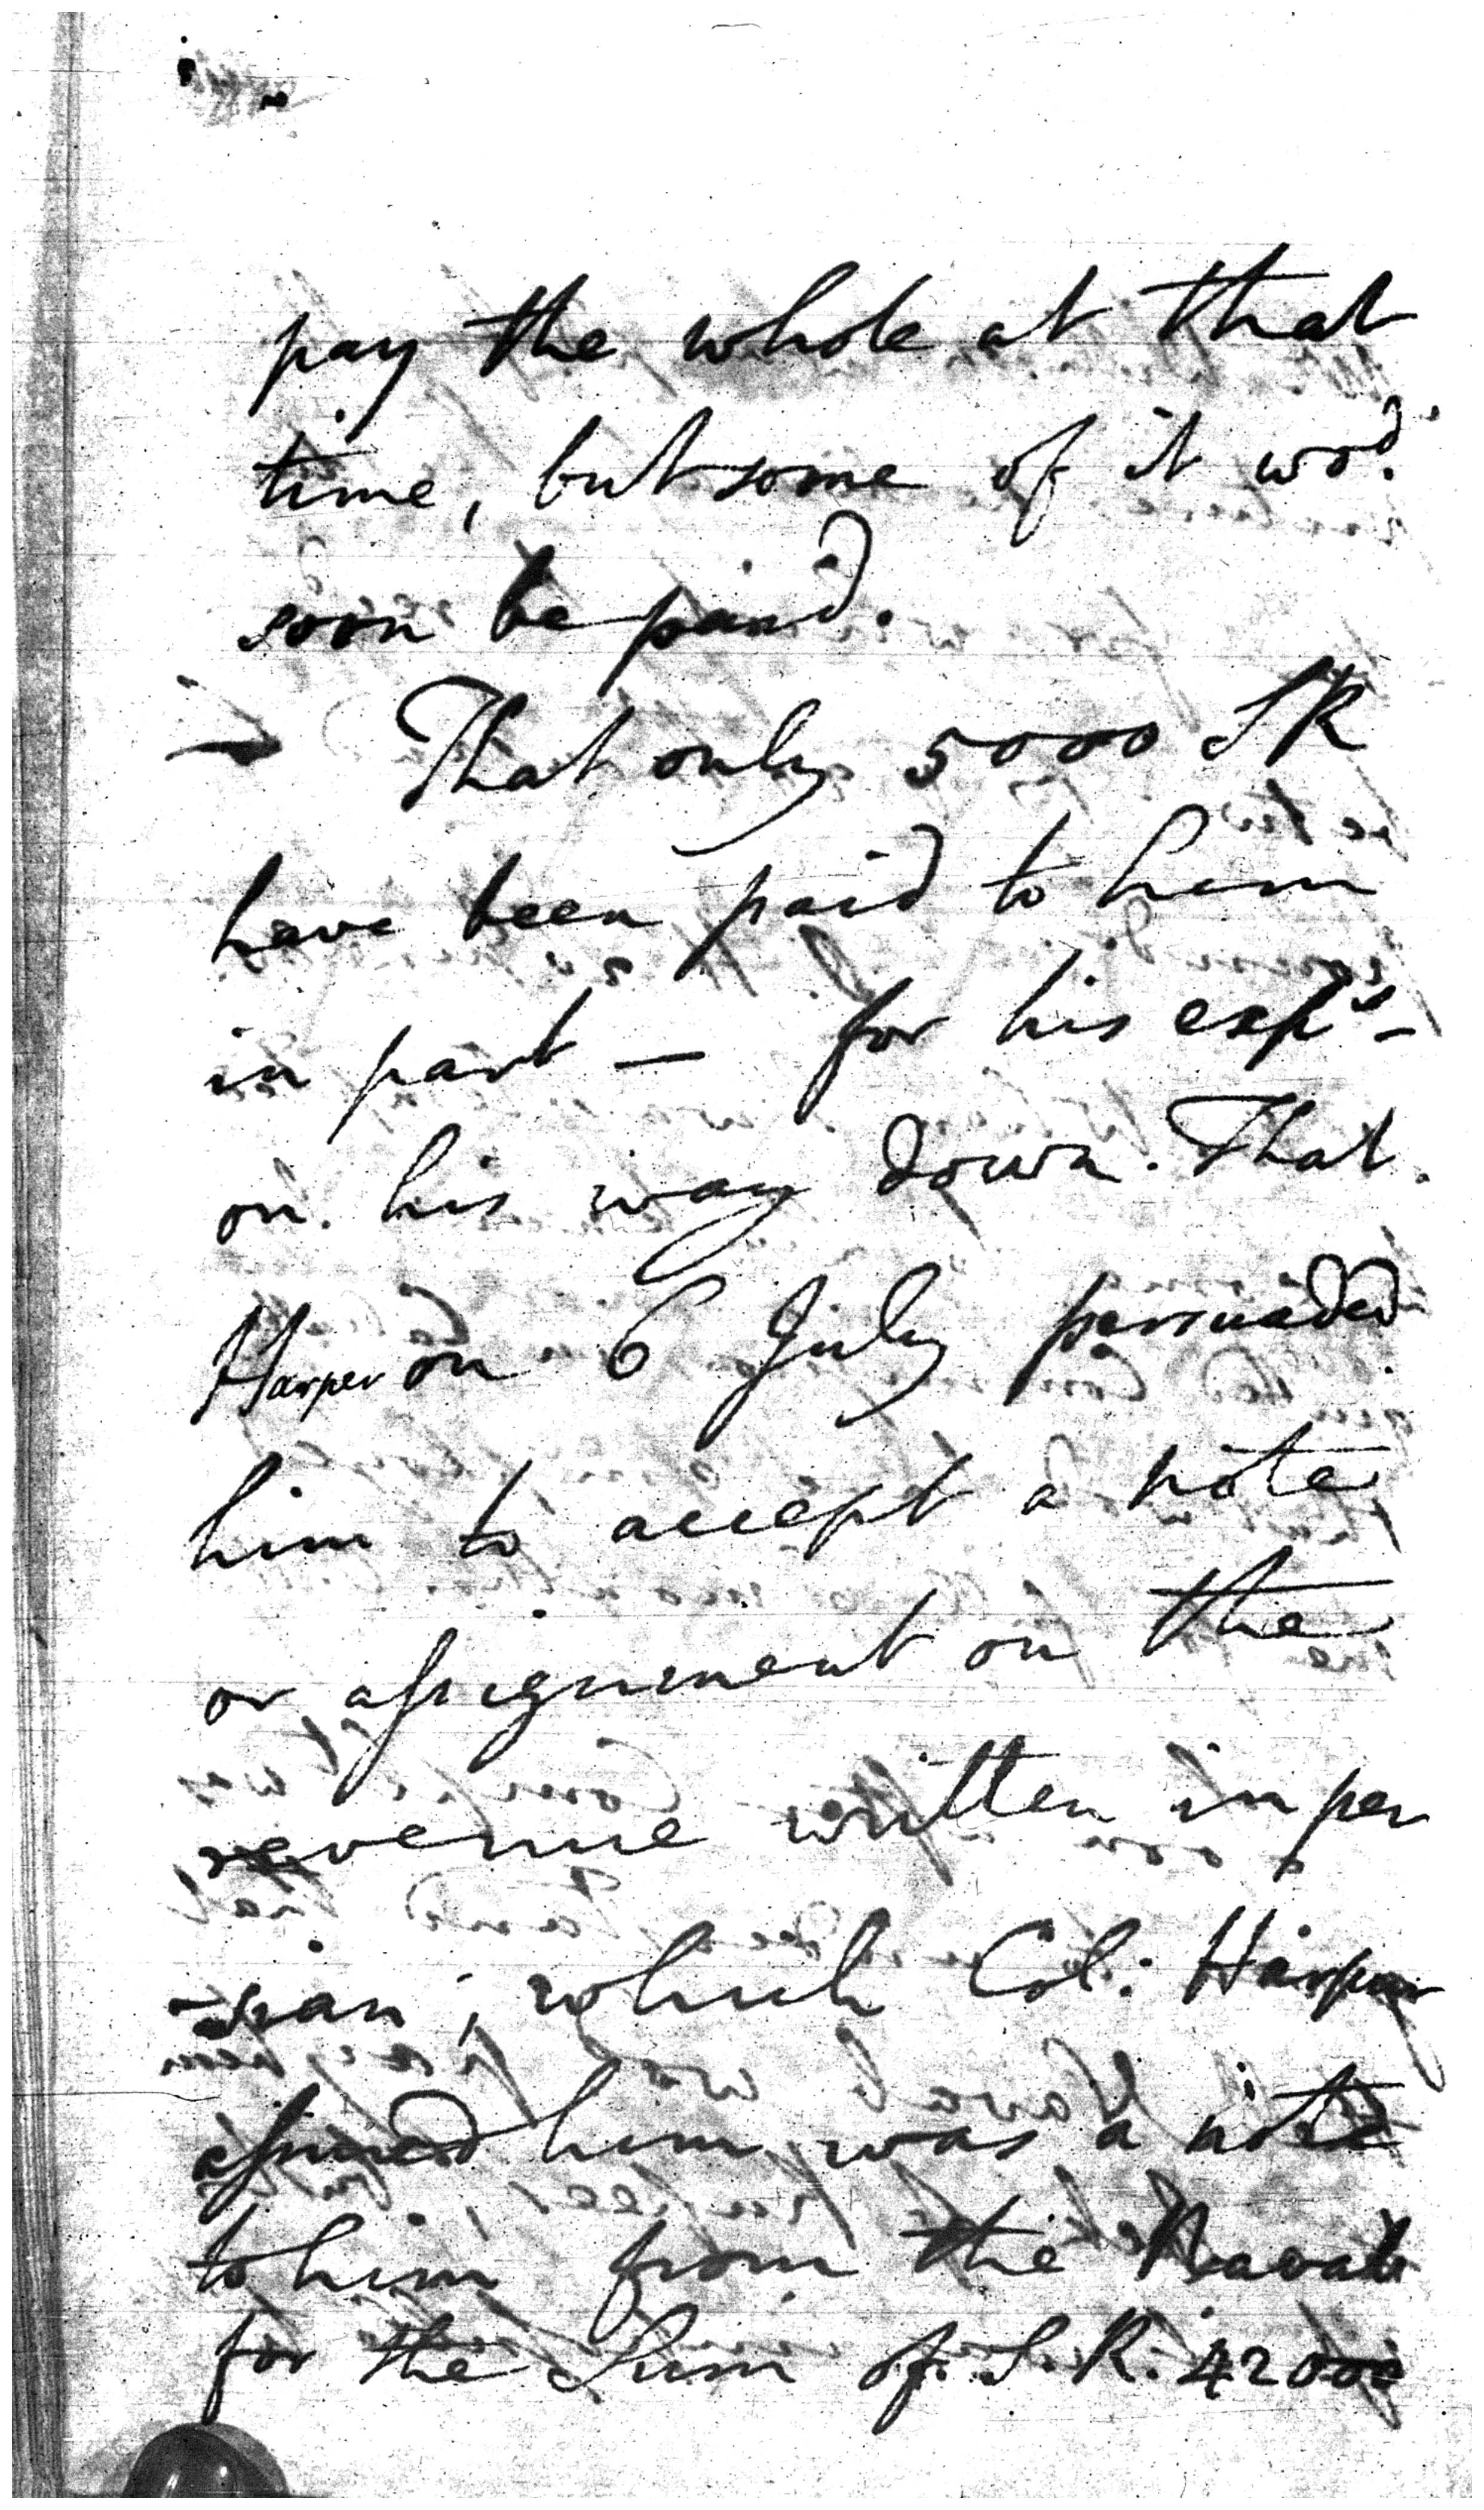 pay the whole at that
time, but some of it wod.
soon be paid.
That only 5000 SR
have been paid to him
in part — for his exps-
on his way down. That
Harper on 6 July persuaded
him to accept a note
or assignment on the
revenue written in per
-sian; which Col: Harper
assured him was a note
to him from the Navab
for the Sum of S.R. 42000